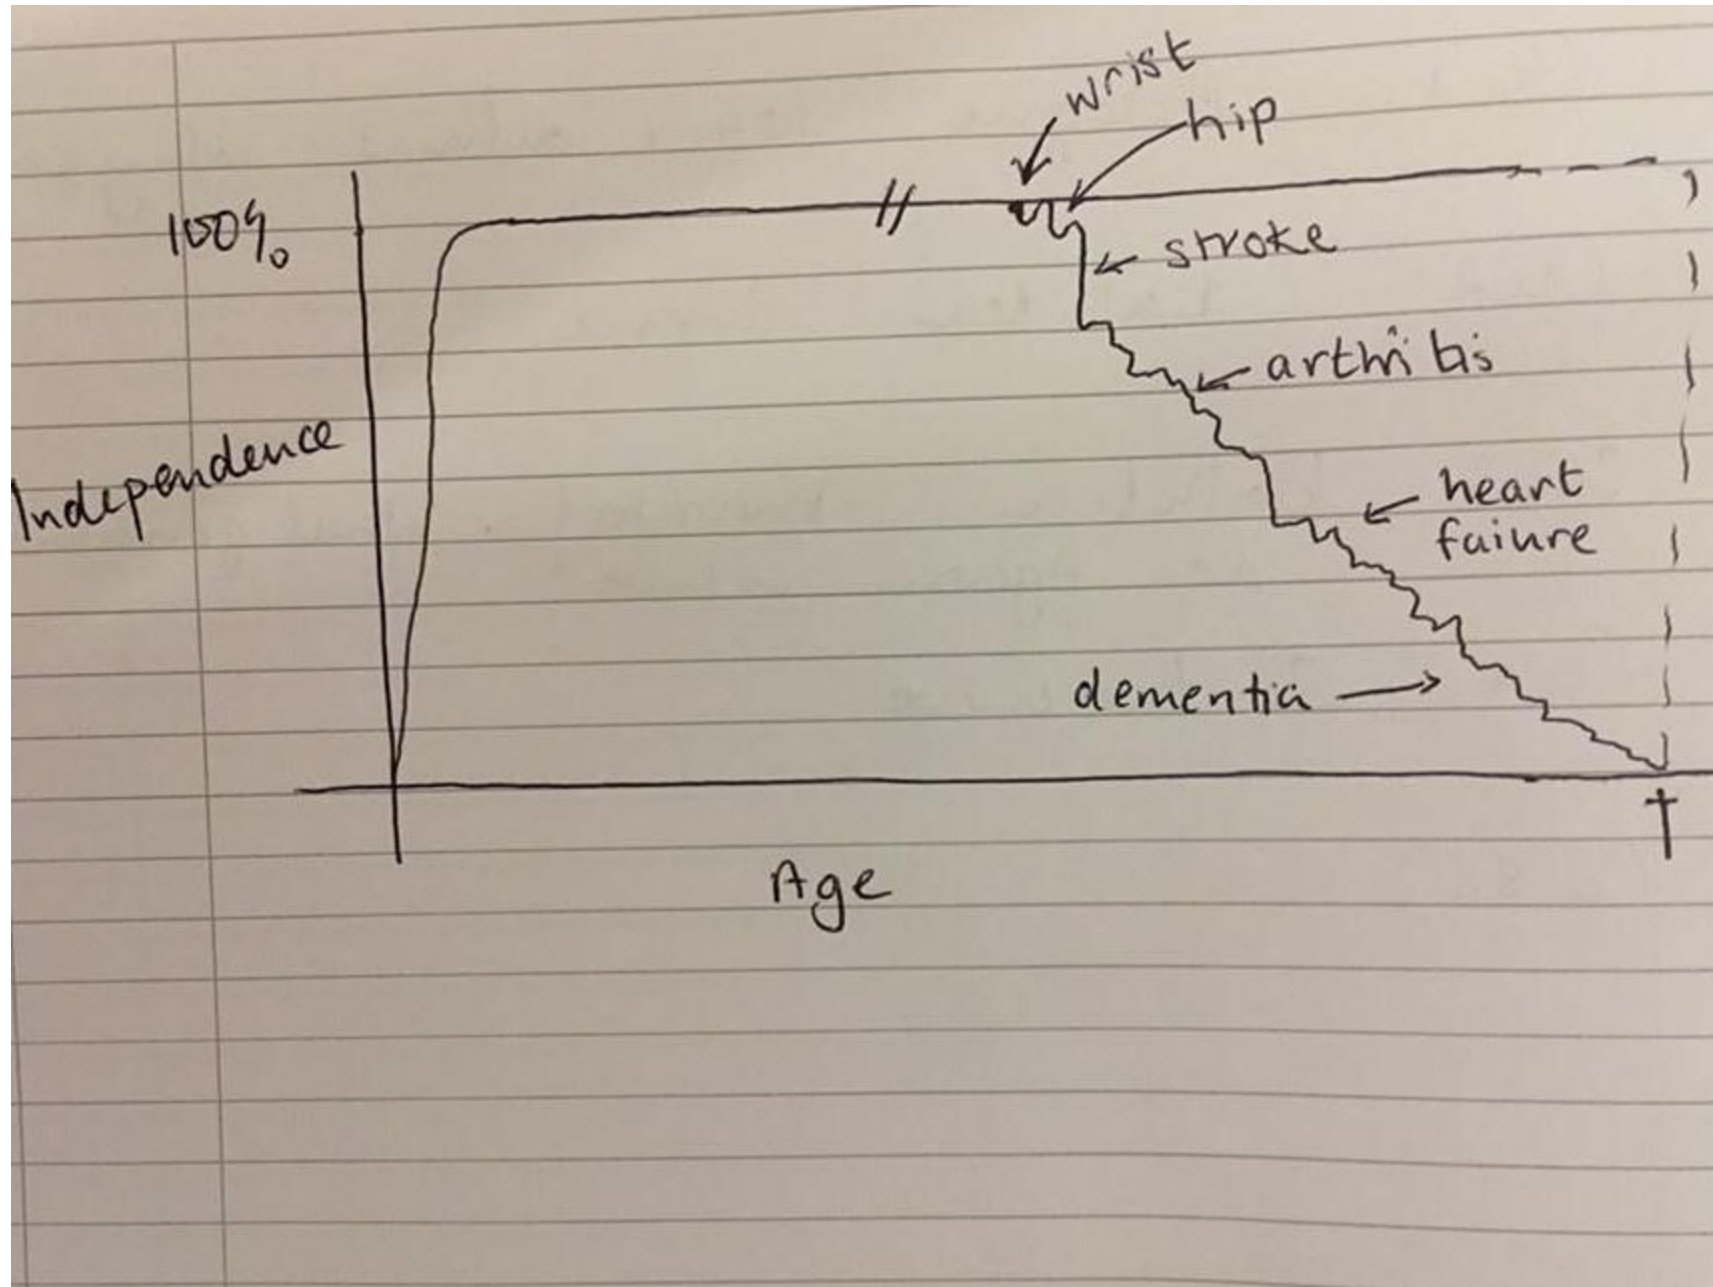 wrist
hip
100%
stroke
arthritis
Independence
heart
faiure
dementia
Age